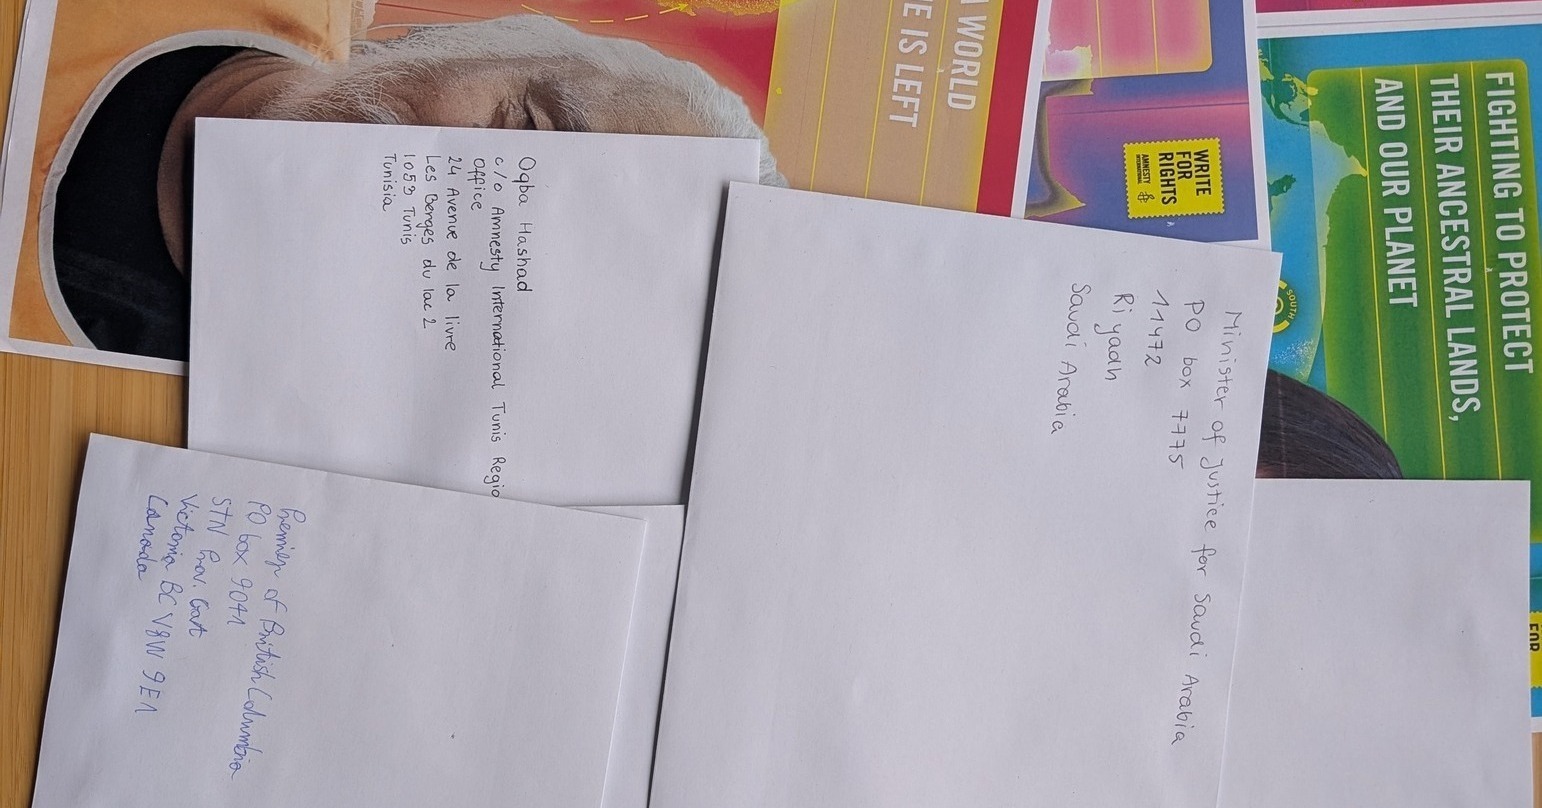 N WORLD
E IS LEFT
WRITE
FOR
RIGHTS
AMNESTY
INTERNATIONAL
FIGHTING TO PROTECT
THEIR ANCESTRAL LANDS,
AND OUR PLANET
SOUTH
Oqba Hashad
c/o Amnesty International Tunis Regio
Office
24 Avenue de la livre
Les Berges du lac 2
1053 Tunis
Tunisia
Minister of justice for Saudi Arabia
PO box 7775
11472
Riyadh
Saudi Arabia
Premier of British Columbia
PO box 9041
STN Prov. Govt
Victoria BC V8W 9E1
Canada
FOR